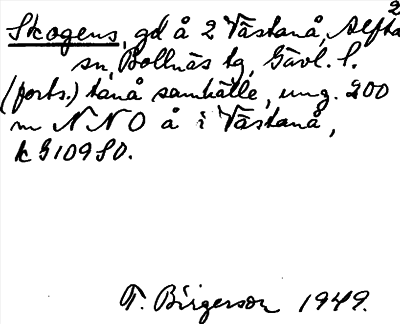 2
Skogens, gd å 2 Västanå, Alfta
sn, Bollnäs tg, Gävl. l.
(forts.) tanå samhälle, ung. 200
m NNO å i Västanå,
k G109SO.
T. Birgerson 1949.